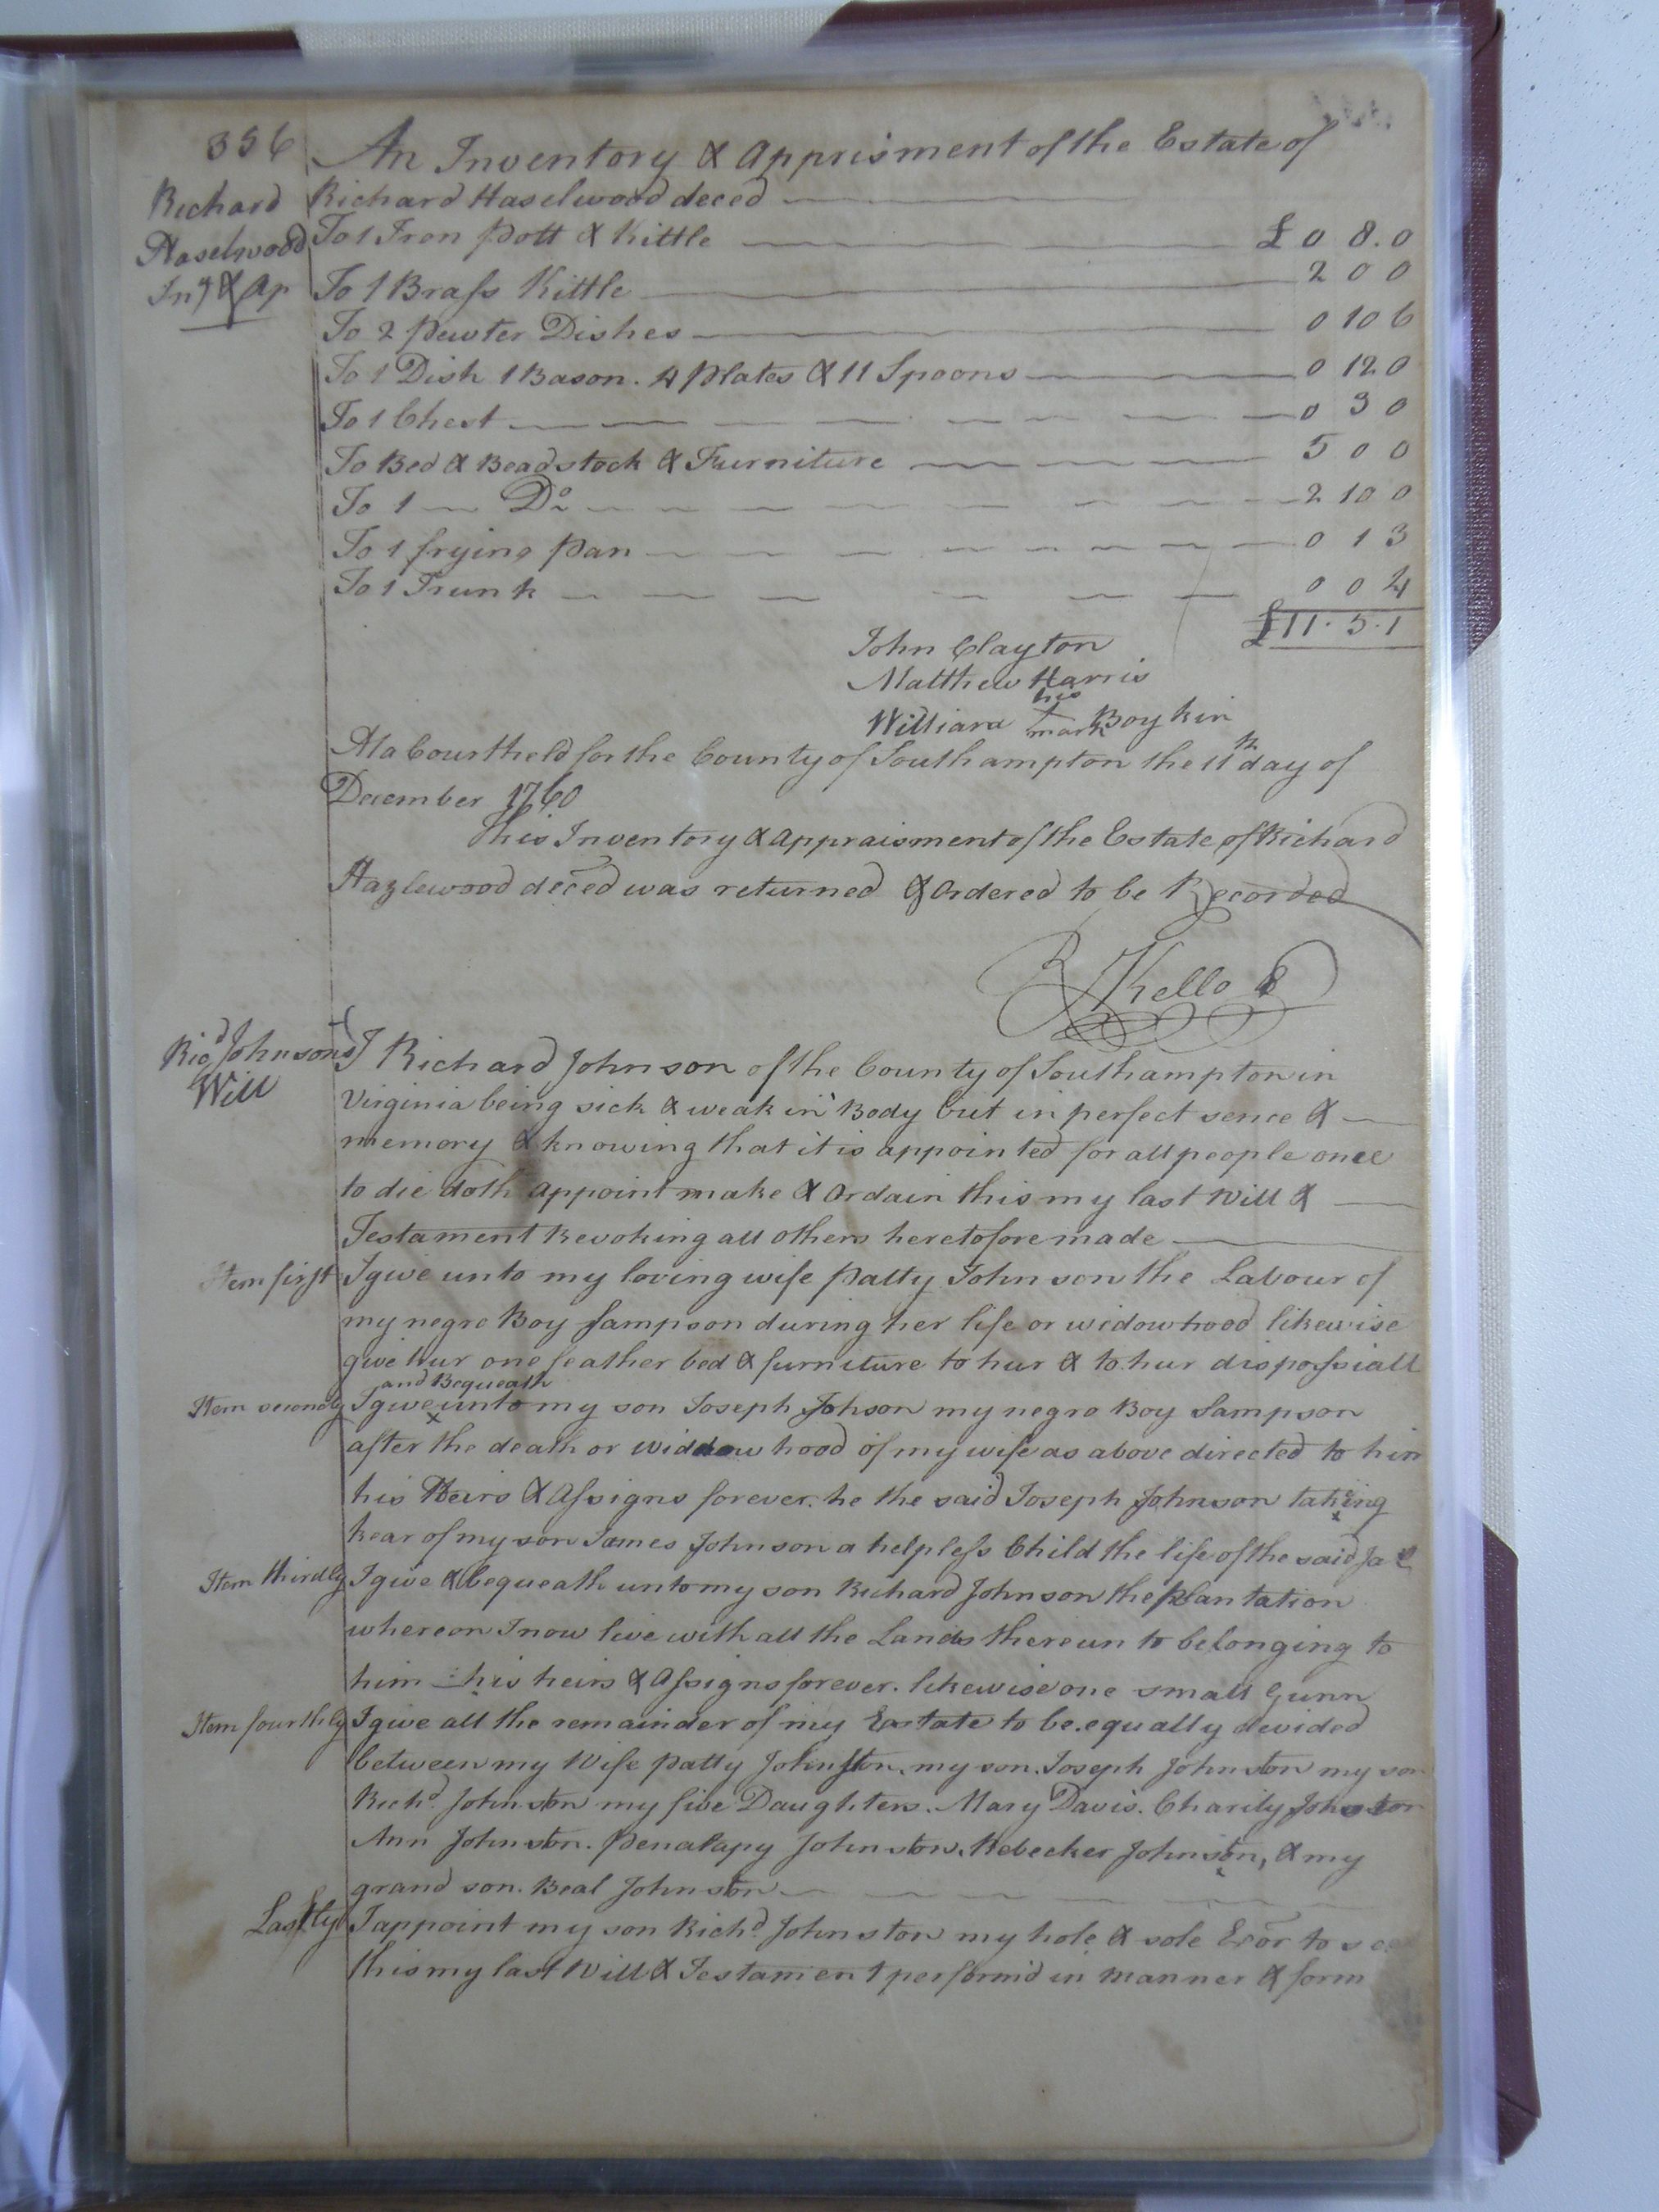 356
An Inventory & Apprisment of the Estate of
Richard
Haselwood
Inv & Ap
Richard Haselwood deced
To 1 Iron Pott & Kittle £ 0 8. 0
To 1 Brass Kittle 2 0 0
To 2 Pewter Dishes 0 10 6
To 1 Dish 1 Bason. 4 Plates & 11 Spoons 0 12 0
To 1 Chest 0 3 0
To Bed & Beadstock & Furniture 5 0 0
To 1 Do 2 10 0
To 1 frying Pan 0 1 3
To 1 Trunk 0 0 4
£11. 5. 1
John Clayton
Matthew Harris
his
William + Boykin
mark
At a Court held for the County of Southampton the 11th day of
December 1760
This Inventory & Appraisment of the Estate of Richard
Hazlewood deced was returned & Ordered to be Recorded
R Kello
Ricd Johnsons
Will
I Richard Johnson of the County of Southampton in
Virginia being sick & weak in Body but in perfect sence &
memory & knowing that it is appointed for all people once
to die doth appoint make & Ordain this my last Will &
Testament Revoking all others heretofore made
Item first I give unto my loving wife Patty Johnson the Labour of
my negro Boy Sampson during her life or widowhood likewise
give hur one feather bed & furniture to hur & to hur dispossiall
and Bequeath
Item secondly I give x unto my son Joseph Johson my negro Boy Sampson
after the death or widdowhood of my wife as above directed to him
his Heirs & Assigns forever. he the said Joseph Johnson taking
kear of my son James Johnson a helpless Child the life of the said Jas
Item thirdly I give & bequeath unto my son Richard Johnson the plantation
whereon I now live with all the Lands thereunto belonging to
him his heirs & Assigns forever. likewise one small Gunn
Item fourthly I give all the remainder of my Eastate to be equally devided
between my Wife Patty Johnston, my son. Joseph Johnston my son
Richd. Johnston my five Daughters. Mary Davis. Charity Johnston
Ann Johnston. Penalapy Johnston. Rebecker Johnston, & my
grand son. Beal Johnston
Lastly I appoint my son Richd. Johnston my hole & sole Exor to see
this my last Will & Testament perform'd in manner & form